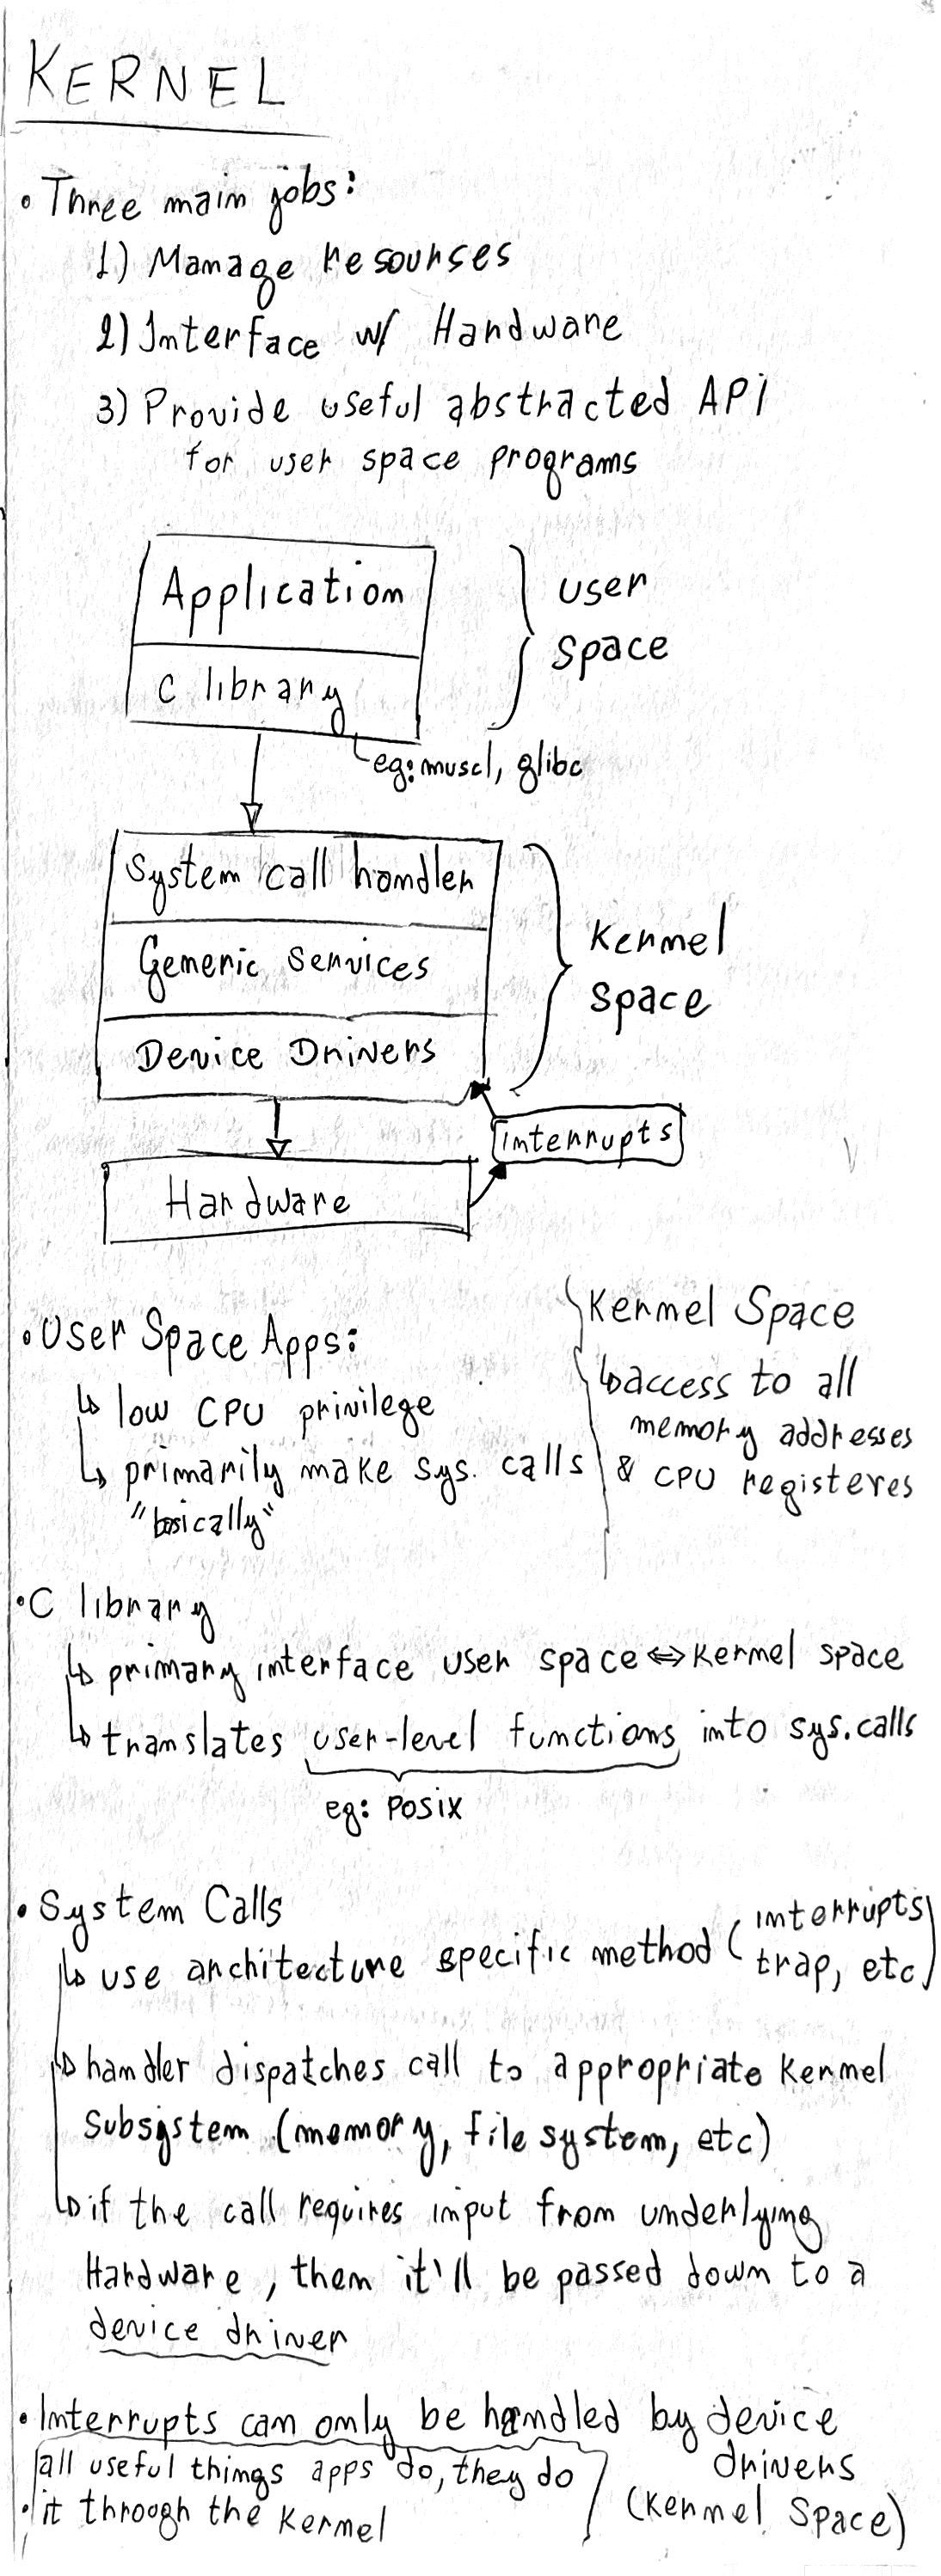 KERNEL
• Three main jobs:
1) Manage resourses
2) Interface w/ Hardware
3) Provide useful abstracted API
for user space programs
Application
C library
user
space
eg: muscl, glibc
System call handler
Generic Services
Device Drivers
Kernel
space
interrupts
Hardware
• User Space Apps:
↳ low CPU privilege
↳ primarily make sys. calls
"basically"
Kernel Space
↳ access to all
memory addresses
& CPU registeres
• C library
↳ primary interface user space ⇔ kernel space
↳ translates user-level functions into sys. calls
eg: POSIX
• System Calls
↳ use architecture specific method (interrupts
trap, etc)
↳ handler dispatches call to appropriate kernel
subsystem (memory, file system, etc)
↳ if the call requires input from underlying
Hardware, then it'll be passed down to a
device driver
• Interrupts can only be handled by device
drivers
(Kernel Space)
• all useful things apps do, they do
it through the kernel